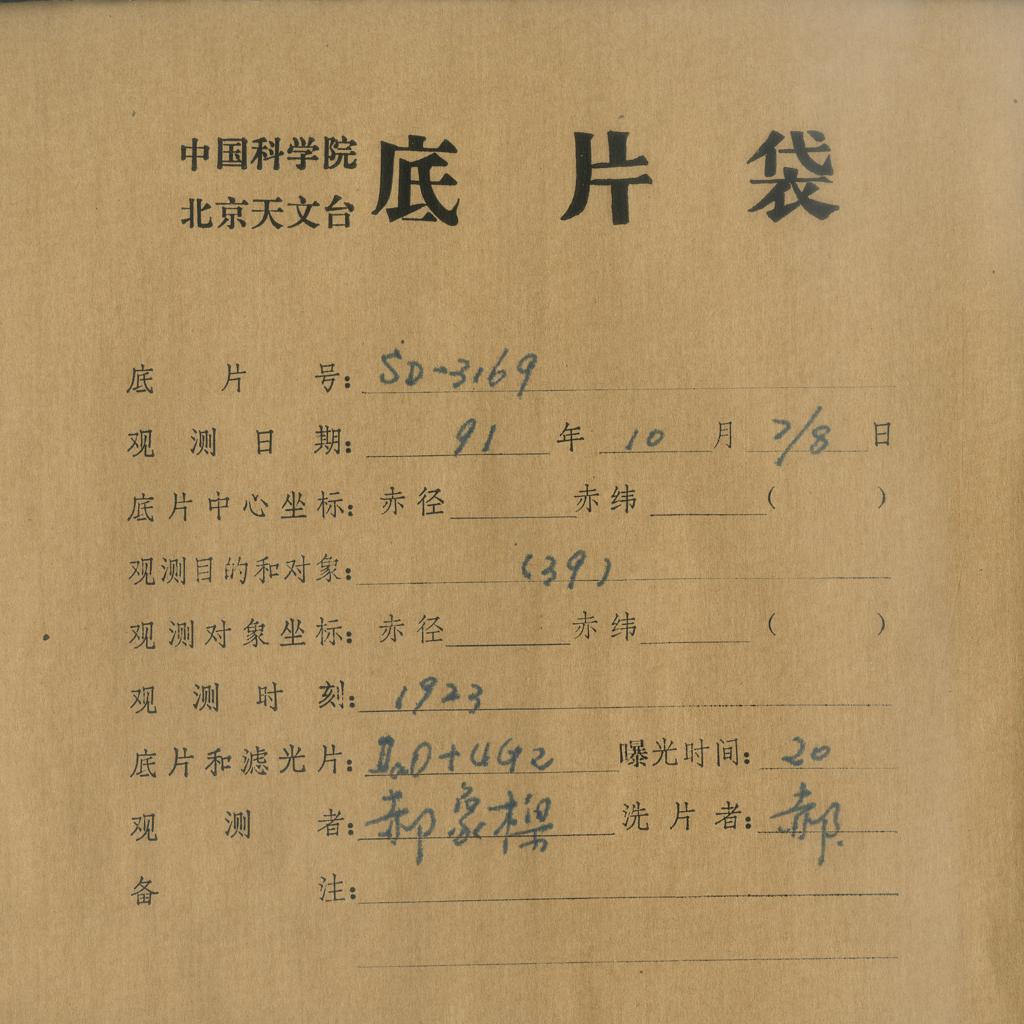 中国科学院
北京天文台
底片袋
底片号：SD-3169
观测日期：91年10月7/8日
底片中心坐标：赤径 赤纬 ( )
观测目的和对象：(39)
观测对象坐标：赤径 赤纬 ( )
观测时刻：1923
底片和滤光片：ⅡaO+UG2 曝光时间：20
观测者：郝象樑 洗片者：郝
备注：